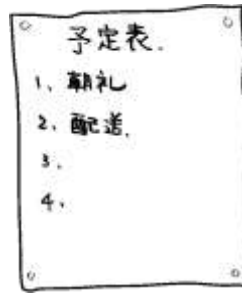 予定表.
1、朝礼
2、配送.
3、
4、